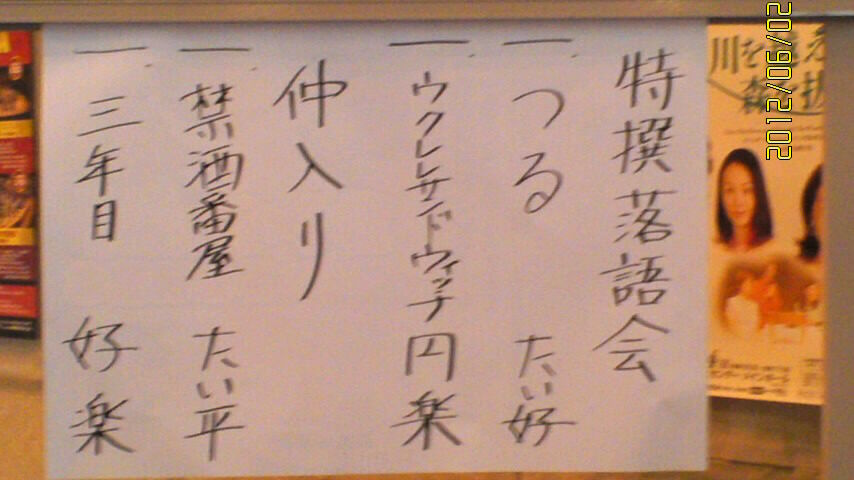 特撰落語会
一、つる たい好
一、ウクレレサンドウィッチ 円楽
仲入り
一、禁酒番屋 たい平
一、三年目 好楽
川を
森
2012/06/02